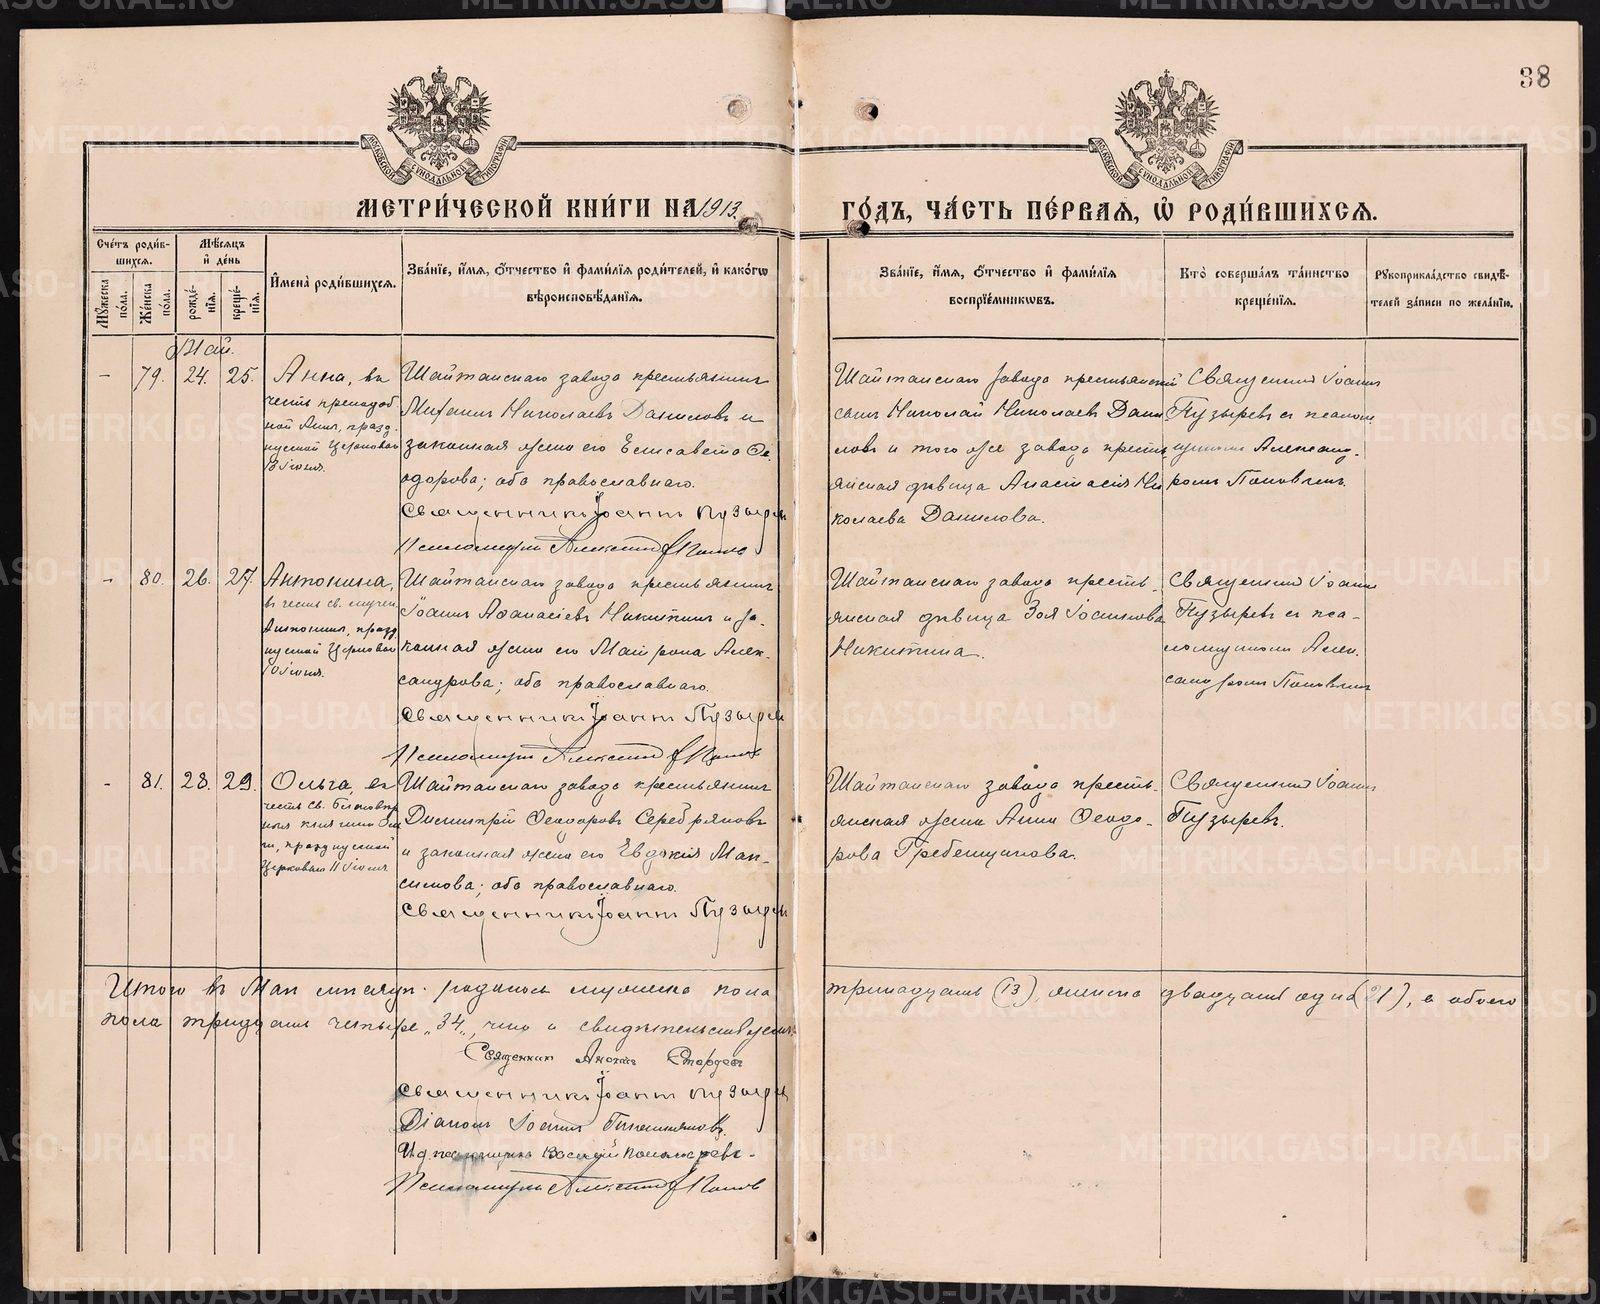 38
МОСКОВСКОЙ СѴНОДАЛЬНОЙ ТИПОГРАФІИ
МОСКОВСКОЙ СѴНОДАЛЬНОЙ ТИПОГРАФІИ
МЕТРИ́ЧЕСКОЙ КНИ́ГИ НА 1913.
ГО́ДЪ, ЧА́СТЬ ПЕ́РВАЯ, Ѡ РОДИ́ВШИХСЯ.
Сче́тъ роди́вшихся.
Мѣ́сяцъ и де́нь
Му́жеска по́ла.
Же́нска по́ла.
рожде́нія.
креще́нія.
Имена̀ роди́вшихся.
Зва́ніе, и́мя, о́тчество и фами́лія роди́телей, и како́гѡ
вѣроисповѣ́данія.
Зва́ніе, и́мя, о́тчество и фами́лія
воспріе́мниковъ.
Кто̀ соверша́лъ та́инство
креще́нія.
Рукоприкла́дство свидѣ́телей за́писи по жела́нію.
Май.
- 79. 24. 25.
Анна, въ
честь преподоб
ной Анны, празд.
нуемой Церковью
13 Іюня.
Шайтанскаго завода крестьянинъ
Николаевъ Даниловъ и
законная жена его Елисавета Ѳе
одорова; оба православнаго.
Священникъ Іоаннъ Пузырев
Псаломщикъ Александр Попов
Шайтанскаго завода крестьянскій
сынъ Николай Николаевъ Дани
ловъ и того же завода кресть
янская дѣвица Анастасія Ни
колаева Данилова.
Священникъ Іоаннъ
Пузыревъ съ псалом
щикомъ Алексан.
ромъ Поповымъ.
- 80. 26. 27.
Антонина,
въ честь св. мучен.
Антонины, празд
нуемой Церковью
10 Іюня.
Шайтанскаго завода крестьянинъ
Іоаннъ Аѳанасіевъ Никитинъ и за.
конная жена его Матрона Алек.
сандрова; оба православнаго.
Священникъ Іоаннъ Пузырев
Псаломщикъ Александр Попов
Шайтанскаго завода кресть.
янская дѣвица Зоя Іоаннова
Никитина.
Священникъ Іоаннъ
Пузыревъ съ пса-
ломщикомъ Алек.
сандромъ Поповымъ
- 81. 28. 29.
Ольга, въ
честь св. благовѣр
ныя княгини Оль
ги, празднуемой
Церковью 11 Іюля.
Шайтанскаго завода крестьянинъ
Димитрій Ѳеодоровъ Серебряковъ
и законная жена его Евдокія Мак-
симова; оба православнаго.
Священникъ Іоаннъ Пузырев
Шайтанскаго завода кресть.
янская жена Анна Ѳеодо-
рова Гребенщикова.
Священникъ Іоаннъ
Пузыревъ.
Итого въ Маѣ мѣсяцѣ родилось мужеска пола
тринадцать (13), женска двадцать одна (21), а обоего
пола тридцать четыре „34„, что и свидѣтельствуемъ:
Священникъ
Священникъ Іоаннъ Пузырев
Діаконъ Іоаннъ
И.д. псаломщика Василій Пономаревъ.
Псаломщикъ Александр Попов
METRIKI.GASO-URAL.RU